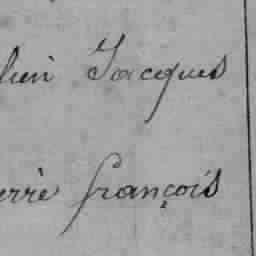 lien Jacques
erre françois